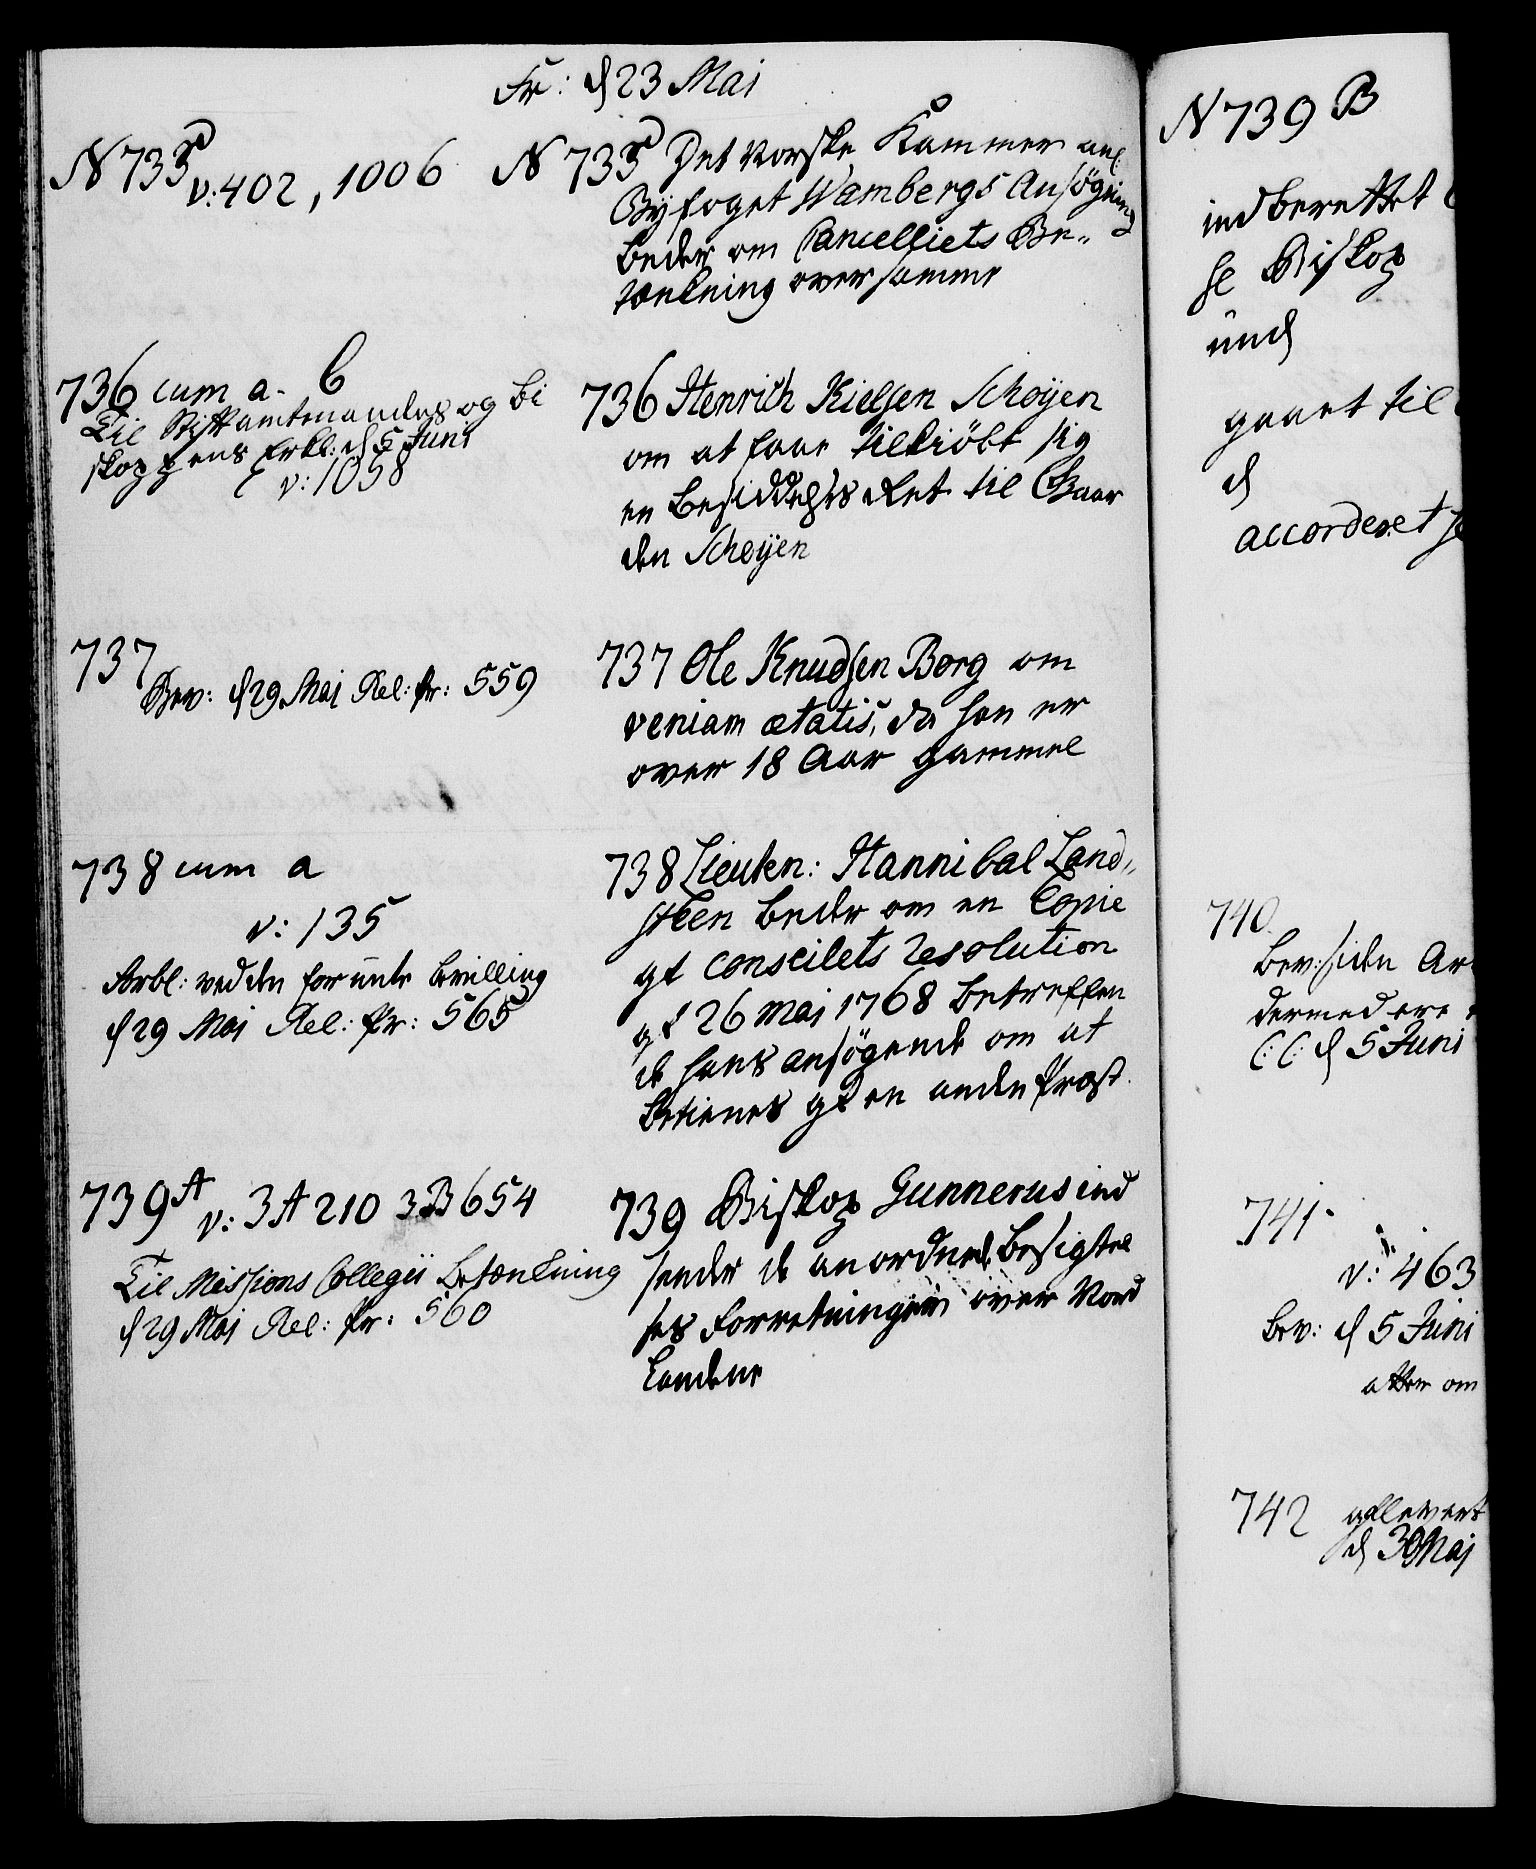 Fr: d 23 Maj
N 735
v: 402, 1006
N 735 Det Norske Kammer anl:
Byfoget Wambergs Ansøgning
beder om Cancelliets Be„
tænkning over samme
736 cum a. b
Til Stiftamtmandens og bi
skoppens Erkl: d 5 Juni
v: 1058
736 Henrich Kielsen Schøyen
om at faae tilkiöbt sig
en besiddelses Ret til Gaar
den Schøyen
737
Bev: d 29 Maj Rel: pr: 559
737 Ole Knudsen Borg om
veniam ætatis, da han er
over 18 Aar gammel
738 cum a
v: 135
forbl: ved den forundte bevilling
d 29 Maj Rel: pr: 565
738 Lieuten: Hannibal Land„
steen beder om en Copie
af conseilets resolution
af 26 Maj 1768 betreffen
de hans ansögende om at
betienes af en anden Præst
739 A v: 3A 210 3B 654
Til Missions Collegii betænkning
d 29 Maj Rel: pr: 560
739 Biskop Gunnerus ind
sender de anordnede besigtel
ses forretninger over Nord
landene
N 739 B
indberettet
se Biskop
und
gaaet til
d
accorderet
740
Bev: siden
dermed ere
C: C: d 5 Juni
741
v: 463
bev: d 5 Juni
atter om
742 afleveret
d 30 Maj